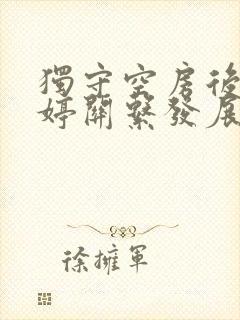 獨守空房後
婷關繫發展
徐擁軍